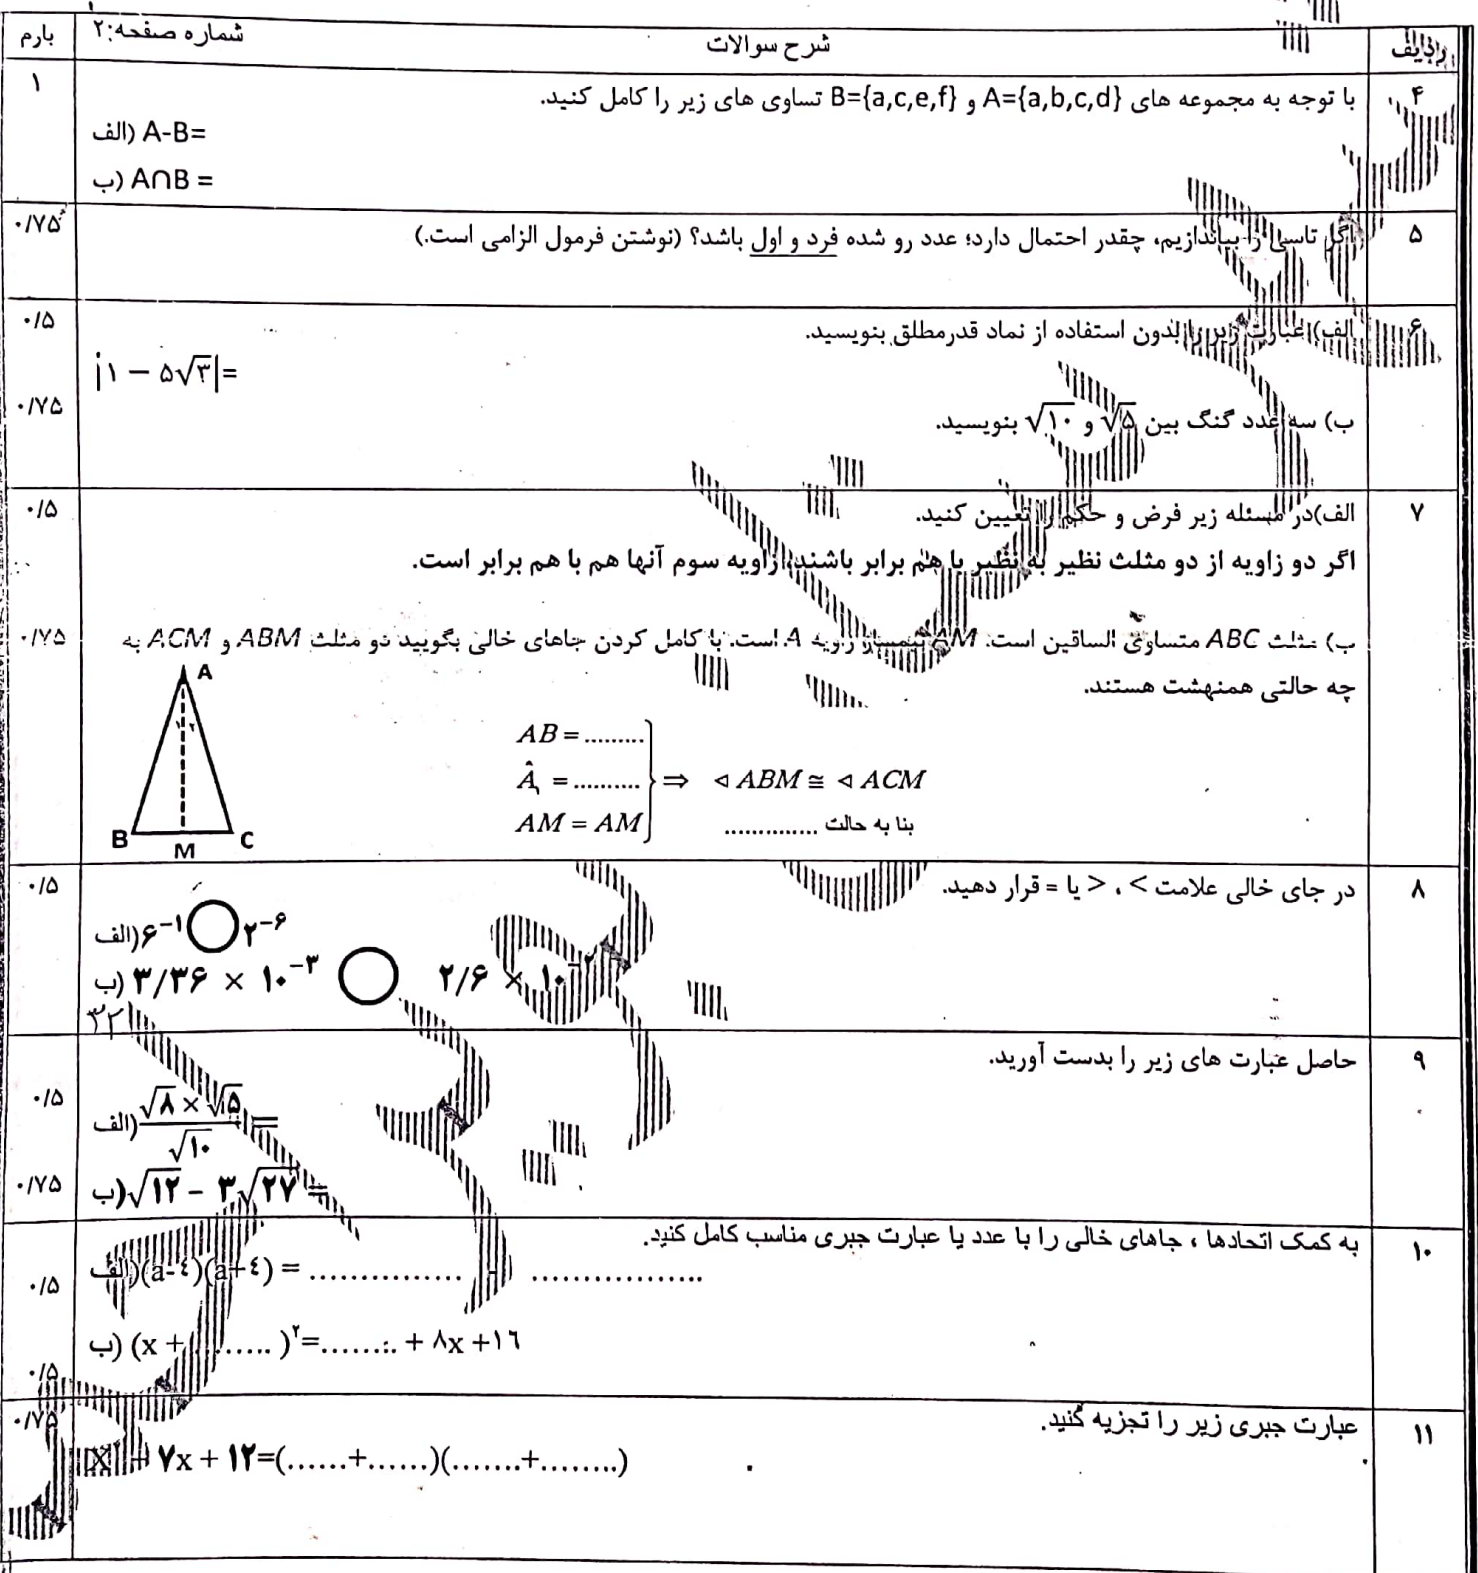 ردیف شرح سوالات شماره صفحه:۲ بارم
۴ با توجه به مجموعه های A={a,b,c,d} و B={a,c,e,f} تساوی های زیر را کامل کنید. ۱
الف) A-B=
ب) A∩B =
۵ اگر تاسی را بیاندازیم، چقدر احتمال دارد؛ عدد رو شده فرد و اول باشد؟ (نوشتن فرمول الزامی است.) ۰/۷۵
۶ الف) عبارت زیر را بدون استفاده از نماد قدرمطلق بنویسید. ۰/۵
|۱ − ۵√۳|=
ب) سه عدد گنگ بین √۵ و √۱۰ بنویسید. ۰/۷۵
۷ الف)در مسئله زیر فرض و حکم را تعیین کنید. ۰/۵
اگر دو زاویه از دو مثلث نظیر به نظیر با هم برابر باشند، زاویه سوم آنها هم با هم برابر است.
ب) مثلث ABC متساوی الساقین است. AM نیمساز زاویه A است. با کامل کردن جاهای خالی بگویید دو مثلث ABM و ACM به ۰/۷۵
چه حالتی همنهشت هستند.
A
۱ ۲
B M C
AB = .........
Â₁ = .......... ⇒ ⊲ ABM ≅ ⊲ ACM
AM = AM بنا به حالت ..............
۸ در جای خالی علامت > ، < یا = قرار دهید. ۰/۵
الف) ۶⁻¹ ◯ ۲⁻⁶
ب) ۳/۳۶ × ۱۰⁻³ ◯ ۲/۶ × ۱۰⁻²
۳۲
۹ حاصل عبارت های زیر را بدست آورید.
الف) (√۸ × √۵)/√۱۰ = ۰/۵
ب) √۱۲ − ۳√۲۷ = ۰/۷۵
۱۰ به کمک اتحادها ، جاهای خالی را با عدد یا عبارت جبری مناسب کامل کنید.
الف) (a-٤)(a+٤) = ............... - ................. ۰/۵
ب) (x + ......... )²=........ + ۸x +١٦ ۰/۵
۱۱ عبارت جبری زیر را تجزیه کنید. ۰/۷۵
x² + ۷x + ۱۲=(......+......)(.......+........)